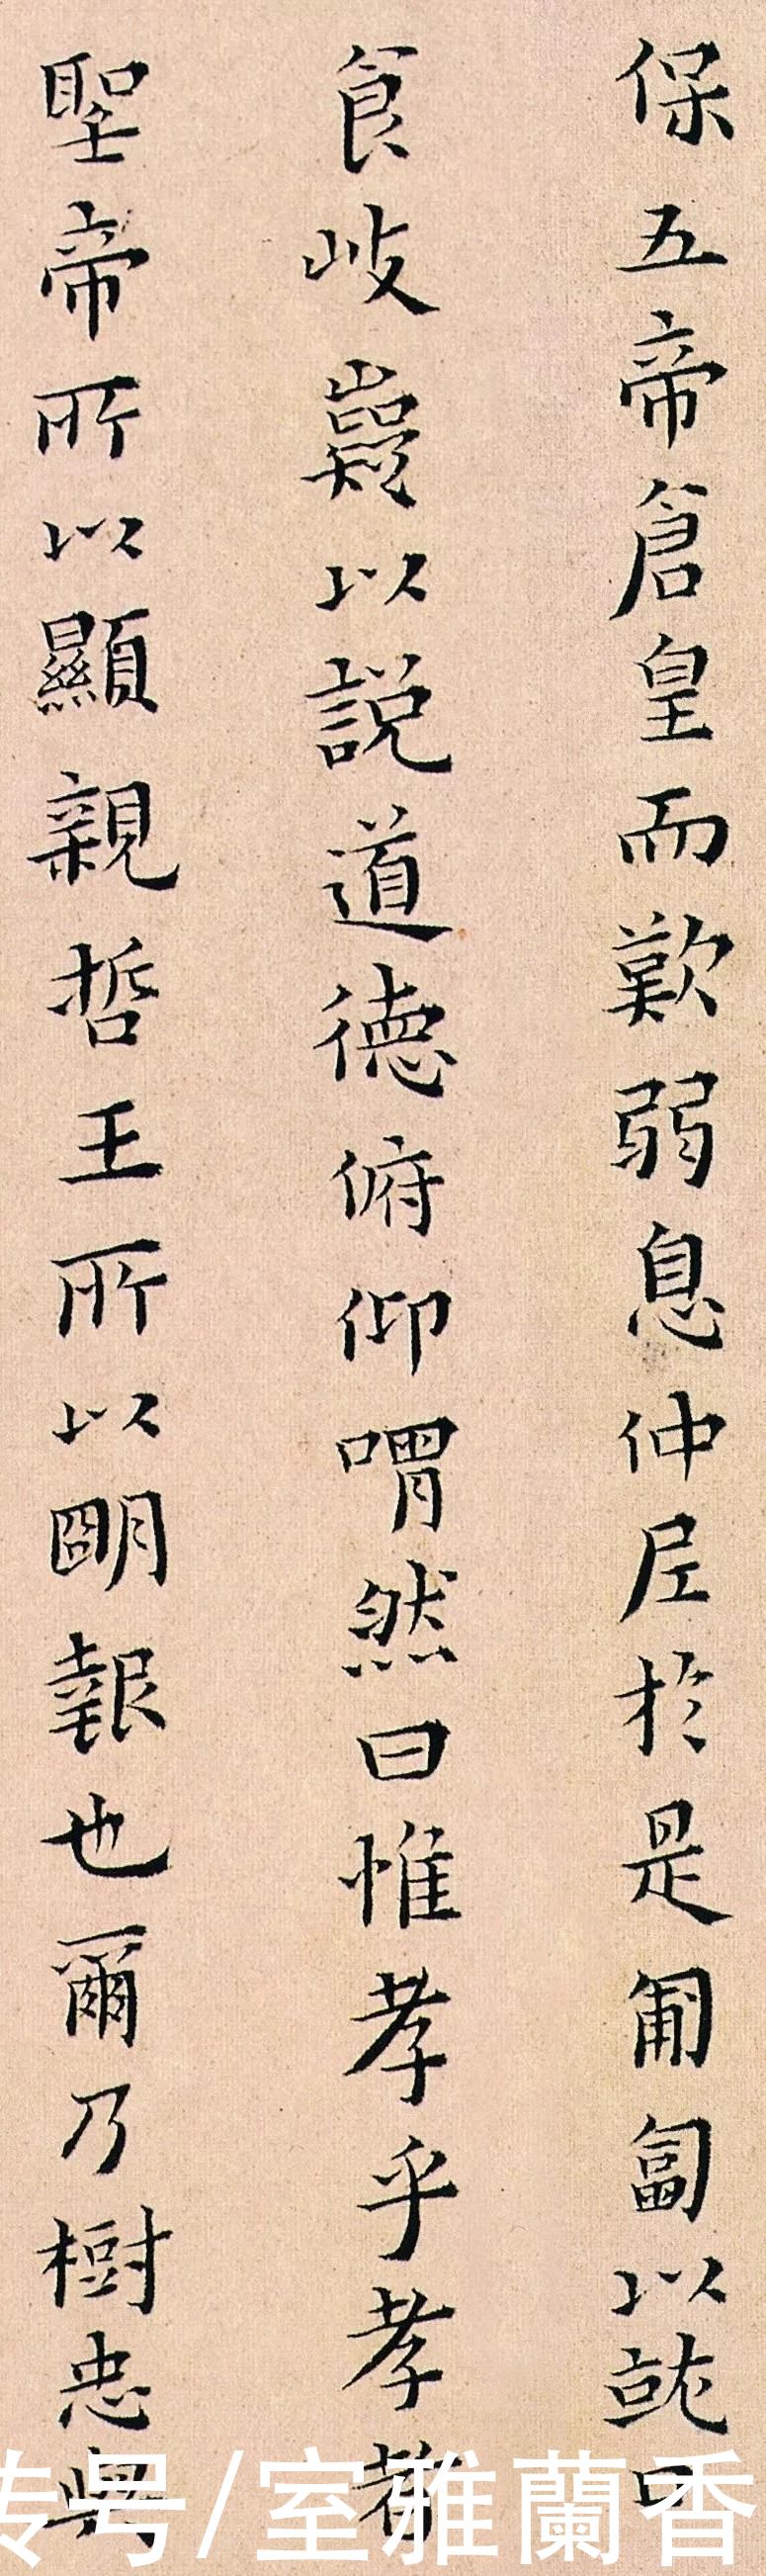 保五帝倉皇而歎弱息仲尼於是匍匐以就口
食岐嶷以說道德俯仰喟然曰惟孝乎孝者
聖帝所以顯親哲王所以明報也爾乃樹忠與
号/室雅蘭香